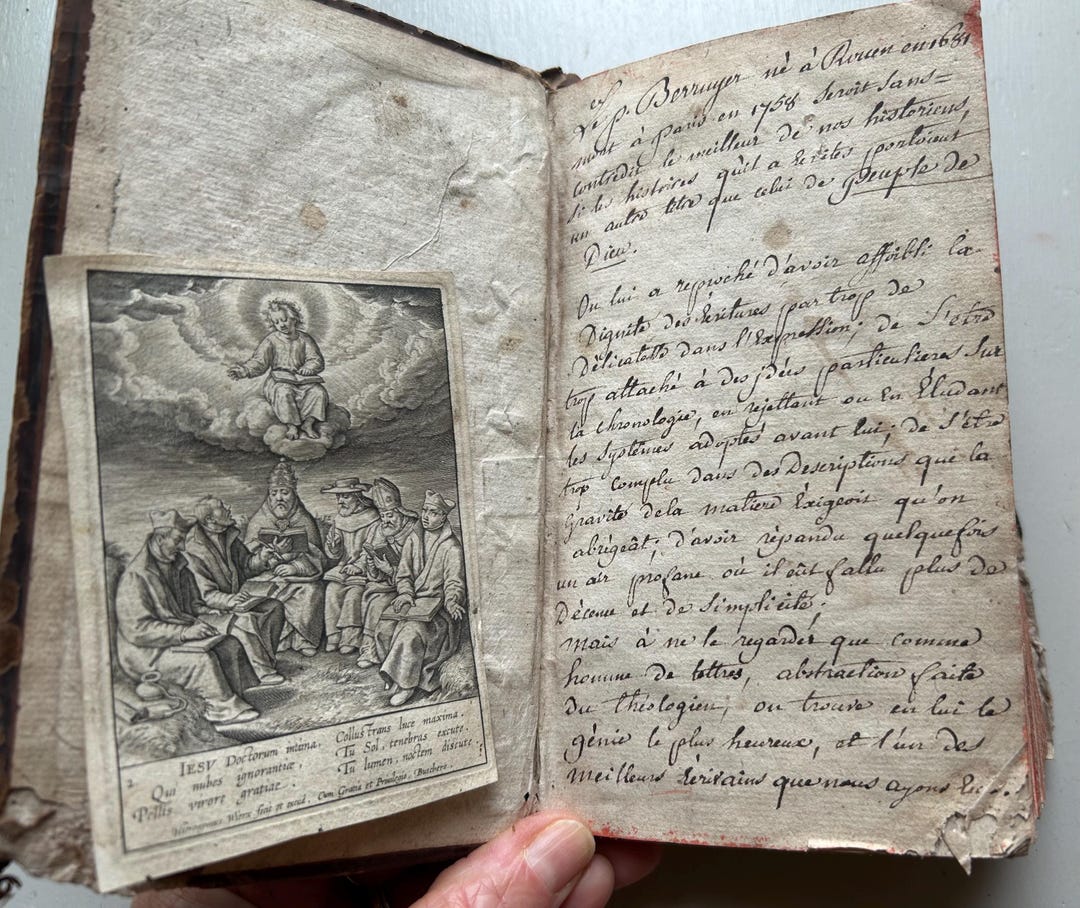 2
IESV Doctorum intima,
Qui nubes ignorantiæ,
Pellis virore gratiae.
Collustrans luce maxima.
Tu Sol, tenebras excute.
Tu lumen, noctem discute.
Hieronymus Wierx fecit et excud. Cum Gratia et Privilegio. Buschere.
Le p. Berruyer né à Rouen en 1681
mort à paris en 1758 seroit sans=
contredit le meilleur de nos historiens,
si les histoires qu'il a Ecrites portoient
un autre titre que celui de peuple de
Dieu.
On lui a reproché d'avoir affoibli la
Dignité des Ecritures par trop de
délicatesse dans l'Expression; de S'etre
trop attaché à des jdées particulieres Sur
la chronologie, en rejettant ou En Eludant
les Systêmes adoptés avant lui; de s'Etre
trop complu dans des Descriptions que la
gravité dela matiere Exigeoit qu'on
abrégeât; d'avoir répandu quelquefois
un air profane où il eût fallu plus de
Décence et de Simplicité.
mais à ne le regarder que comme
homme de lettres, abstraction faite
du théologien, on trouve en lui le
génie le plus heureux, et l'un des
meilleurs Ecrivains que nous ayons